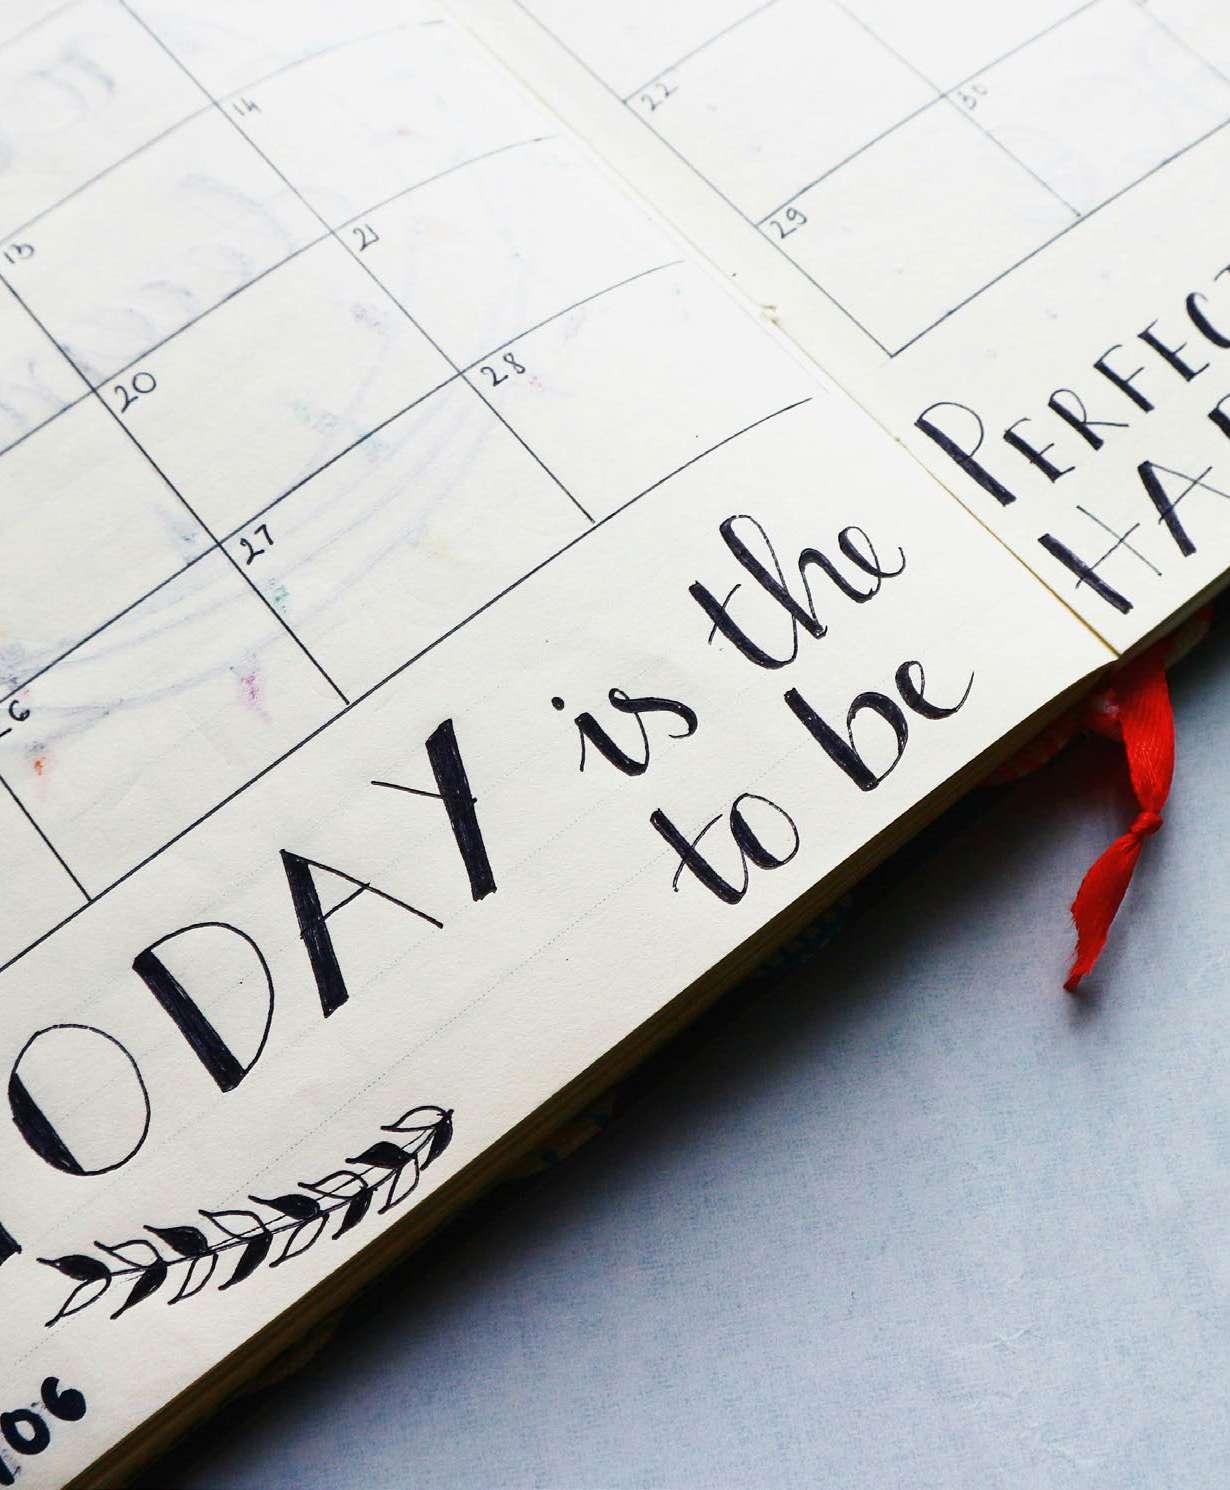 14
13
21
20
28
27
6
ODAY is the
to be
06
22
30
29
PERFEC
HA